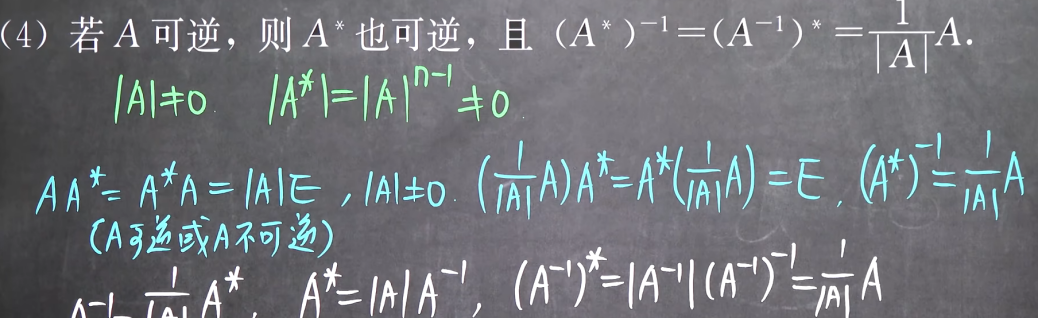 (4) 若 A 可逆，则 A* 也可逆，且 (A*)⁻¹=(A⁻¹)*=1/|A| A.
|A|≠0. |A*|=|A|ⁿ⁻¹≠0.
AA*=A*A=|A|E，|A|≠0. (1/|A| A)A*=A*(1/|A| A)=E，(A*)⁻¹=1/|A| A
(A可逆或A不可逆)
A⁻¹=1/|A| A*，A*=|A|A⁻¹，(A⁻¹)*=|A⁻¹|(A⁻¹)⁻¹=1/|A| A